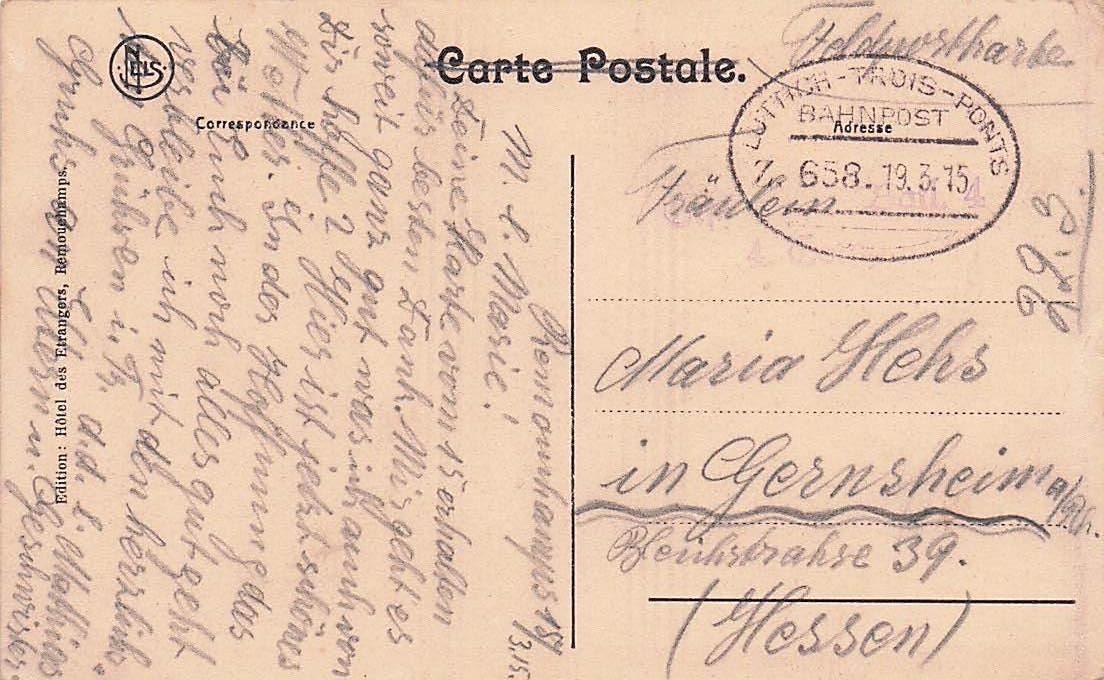 NELS
Carte Postale.
Correspondance
Adresse
Edition: Hôtel des Etrangers, Remouchamps.
Feldpostkarte
LÜTTICH-TROIS-PONTS
BAHNPOST
Z. 658. 19.3.15
Fräulein
22.3.
Maria Hehs
in Gernsheim a/Rh.
Bleichstrahse 39.
(Hessen)
Remouchamps 18/
3.15.
M. l. Marie!
Deine Karte vom 15 erhalten
dafür besten Dank. Mir geht es
soweit ganz gut was ich auch von
Dir hoffe. Hier ist jetzt schöns
Wetter. In der Hoffnung das
bei Euch noch alles gut geht
verbleibe ich mit den herzlich-
Grüßen
Gruhs an Eltern u. Geschwister